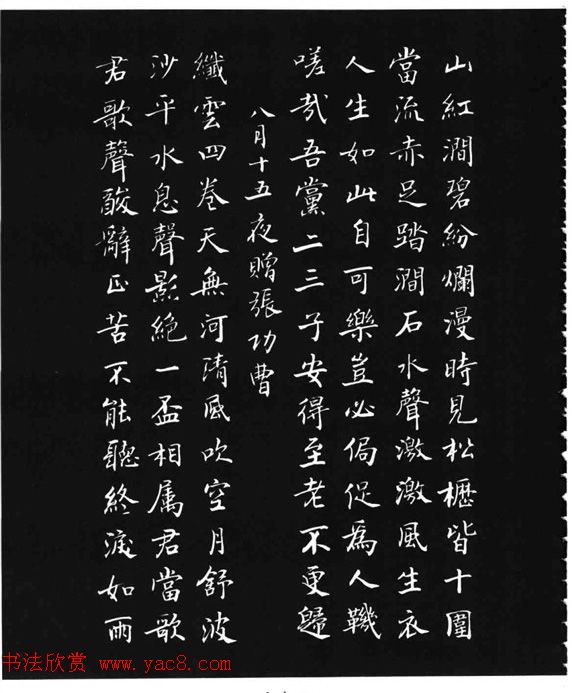 山紅澗碧紛爛漫時見松櫪皆十圍
當流赤足踏澗石水聲激激風生衣
人生如此自可樂豈必侷促爲人鞿
嗟哉吾黨二三子安得至老不更歸
八月十五夜贈張功曹
纖雲四卷天無河清風吹空月舒波
沙平水息聲影絕一盃相属君當歌
君歌聲酸辭正苦不能聽終淚如雨
书法欣赏 www.yac8.com